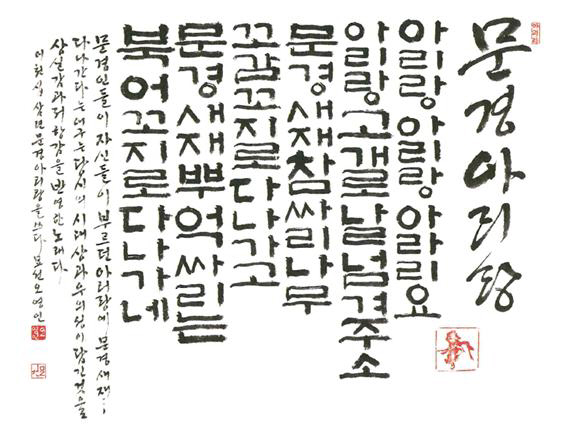 문경아리랑
아리랑아리랑아라리요
아리랑고개로날넘겨주소
문경새재참싸리나무
꼬감꼬지로다나가고
문경새재뿌억싸리는
북어꼬지로다나가네
문경인들이 자신들이 부르던 아리랑에 문경새재…
다나간다는 어구는 당시의 시대상과 우의성이 담긴 것을
상실감과 저항감을 반영한 노래다.
문경아리랑을 쓰다 오영인